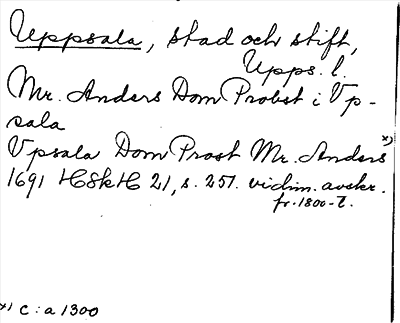 Uppsala, stad och stift,
Upps. l.
Mr. Anders Dom Probst i Vp-
sala
Vpsala Dom Prost Mr. Anders x)
1691 HSkH 21, s. 257. vidim. avskr.
fr. 1800-t.
x) c:a 1300